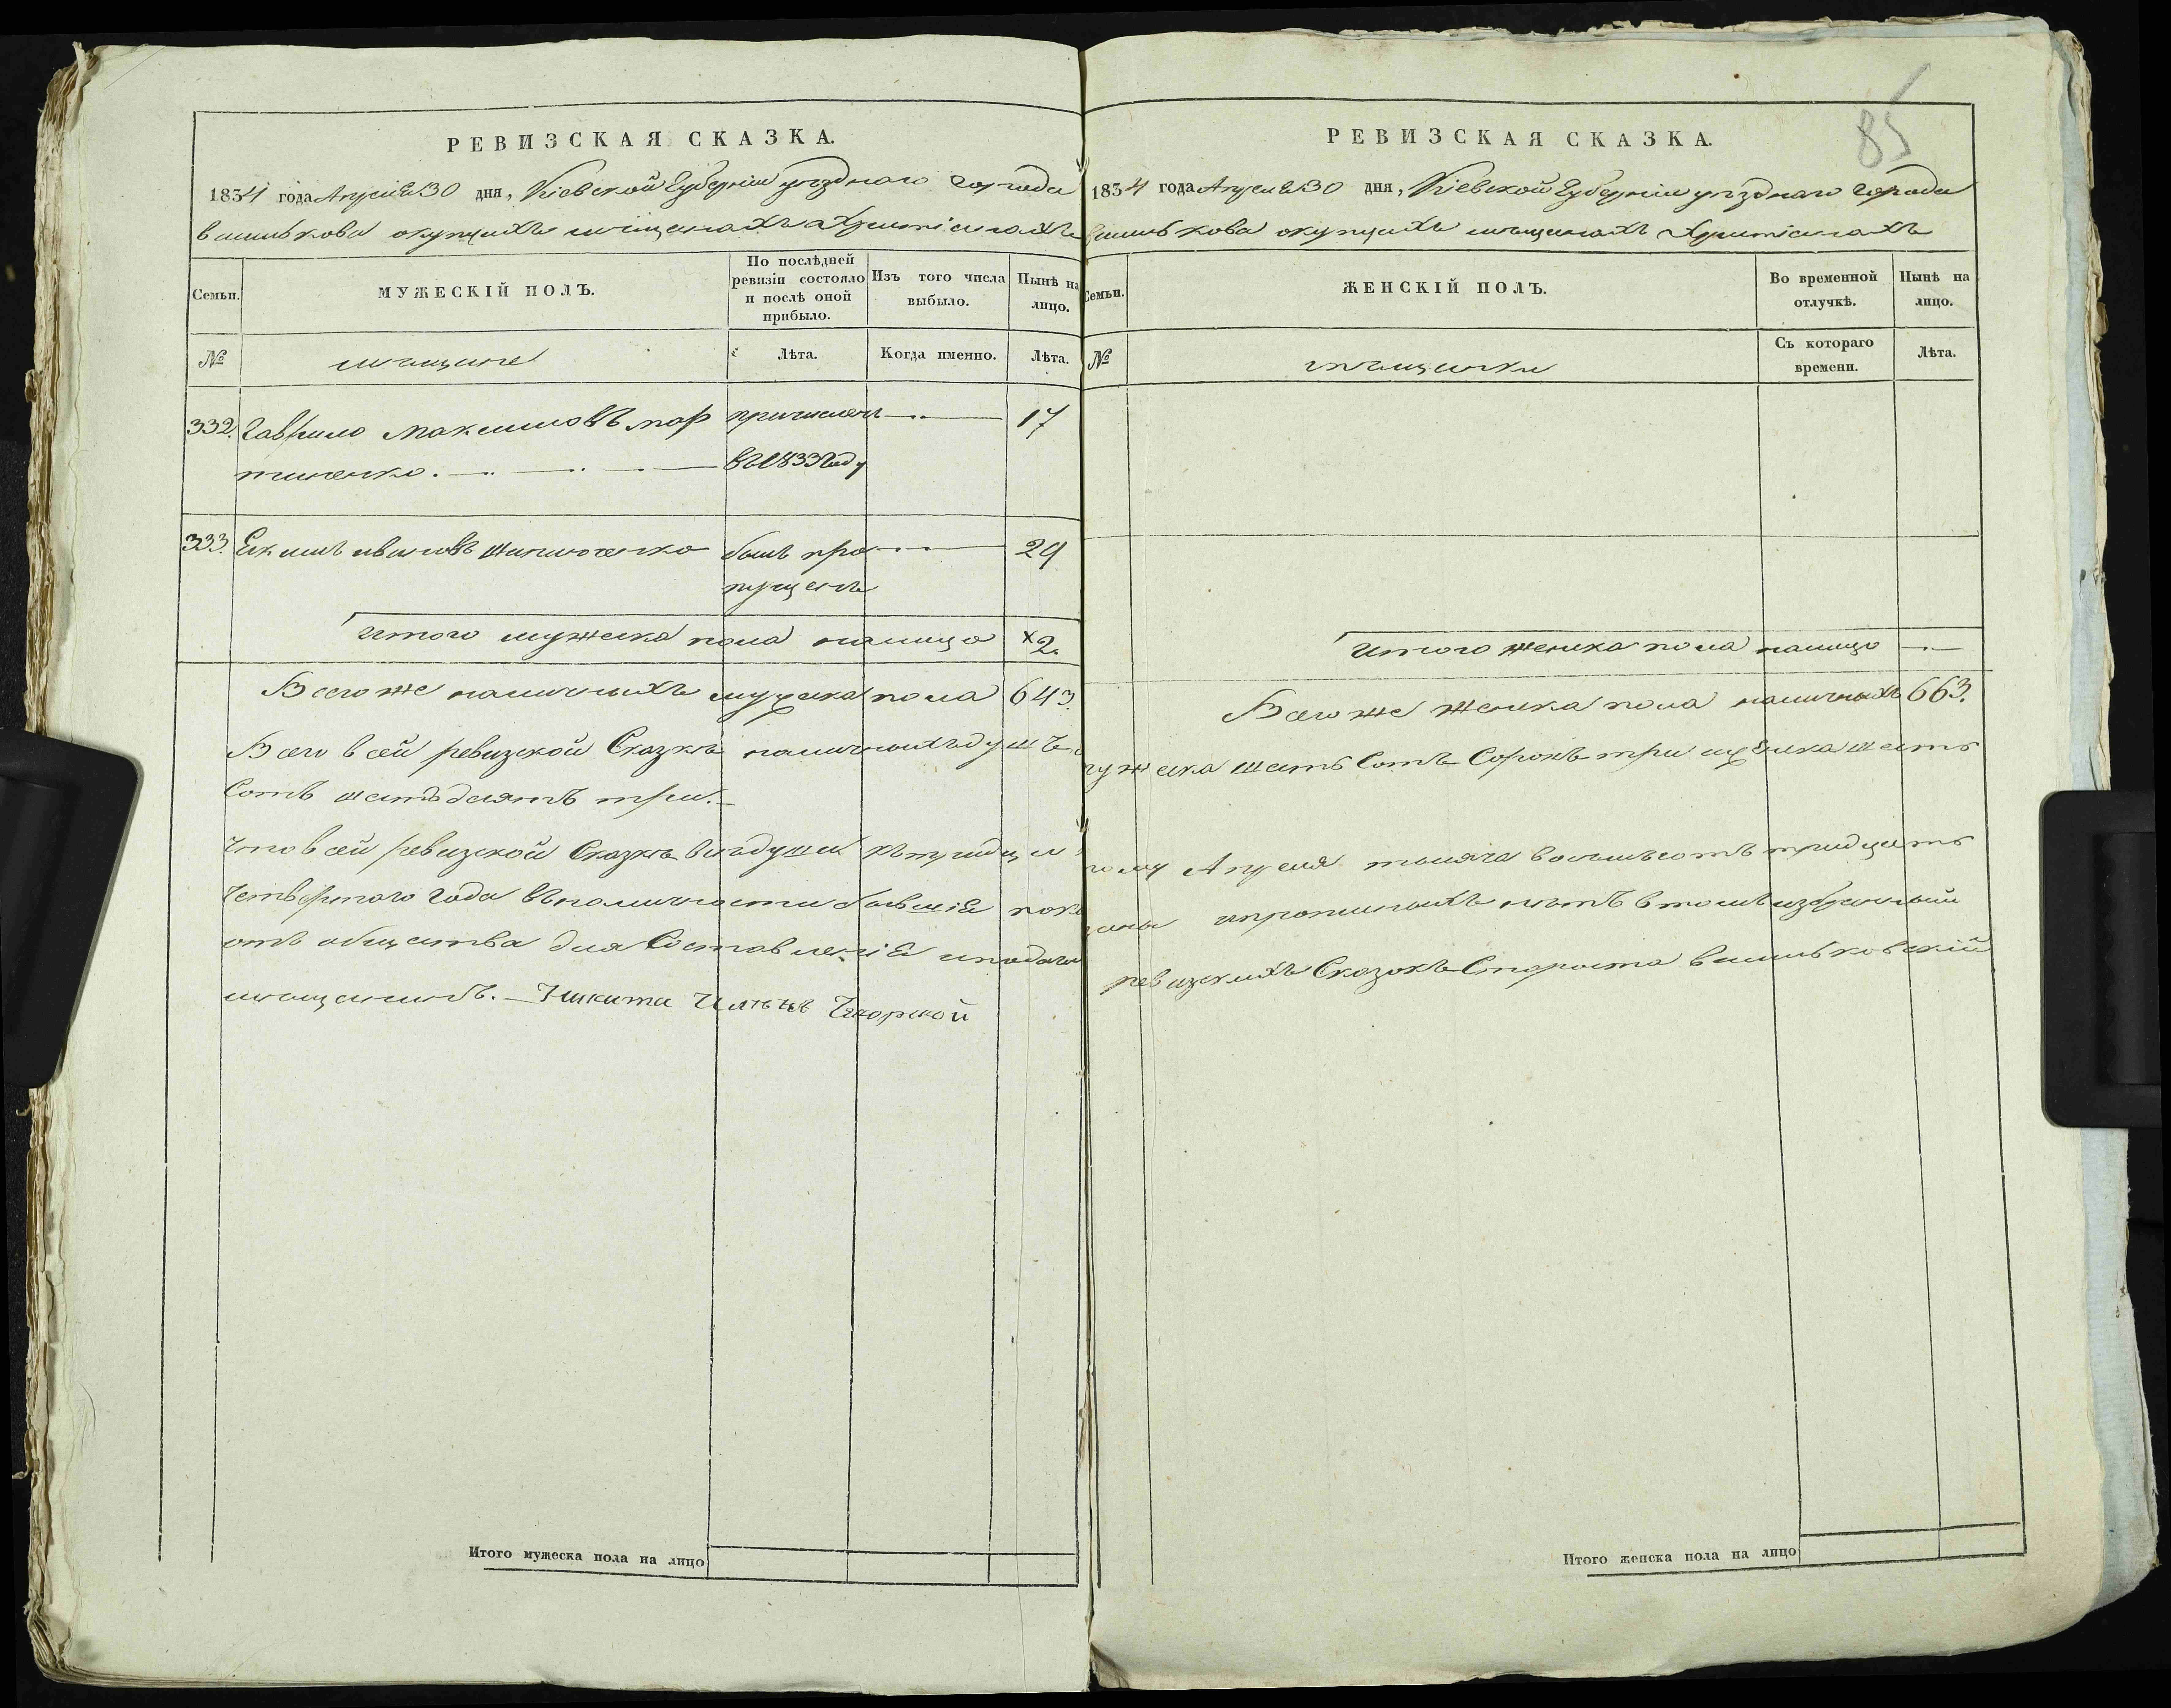 РЕВИЗСКАЯ СКАЗКА.
1834 года Апреля 30 дня, Кіевской Губерніи уѣзднаго города
василькова окупцахъ мѣщанахъ Христіанахъ
Семьи.
МУЖЕСКІЙ ПОЛЪ.
По послѣдней ревизіи состояло и послѣ оной прибыло.
Изъ того числа выбыло.
Нынѣ на лицо.
№
мѣщане
Лѣта.
Когда именно.
Лѣта.
332. Гаврило Максимовъ мар причисленъ 17
тиненко. въ 1833 Году
333. Еким ивановъ шапошенко былъ про 29
пущенъ
Итого мужеска пола налицо 2.
Всего же наличныхъ мужеска пола 643.
Всего всей ревизской Сказкѣ наличныхъ душъ
Сотъ шестдесятъ три.
Что всей ревизской Сказкѣ всѣ души къ тридца
Четвертаго Года въ наличности бывшіе пока
отъ общества для Составленіе и подачи
мещанинъ. Никита Ильинъ
РЕВИЗСКАЯ СКАЗКА.
85
1834 года Апреля 30 дня, Кіевской Губерніи уѣзднаго города
василькова окупцахъ мѣщанахъ Христіанахъ
Семьи.
ЖЕНСКІЙ ПОЛЪ.
Во временной отлучкѣ.
Нынѣ на лицо.
№
мѣщанки
Съ котораго времени.
Лѣта.
Итого женска пола налицо
Всего же женска пола наличныхъ 663.
мужеска шесть Сотъ Сорокъ три женска шесть
тому Апреля тысяча восимьсотъ тридцать
заны ипрописныхъ нѣтъ втомъ избранный
ревизскихъ Сказокъ Староста васильковскій
Итого мужеска пола на лицо
Итого женска пола на лицо